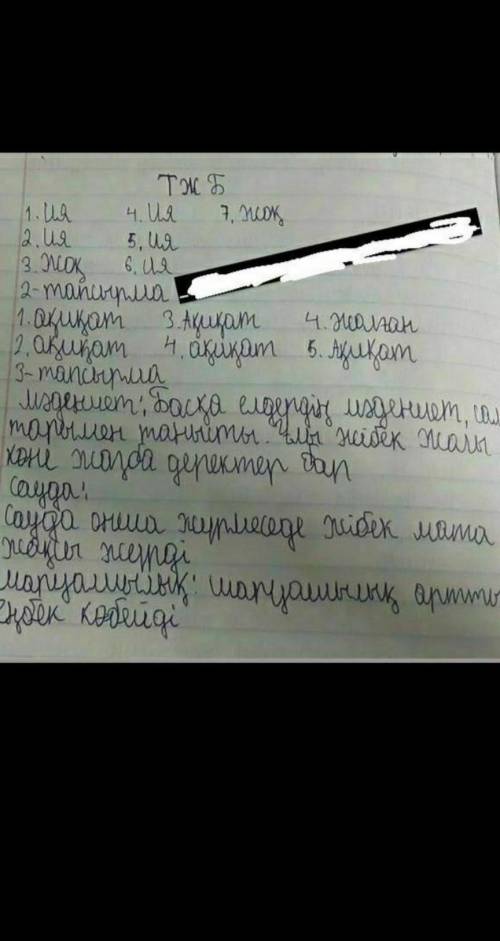 ТЖБ
1. Ия 4. Ия 7. Жоқ
2. Ия 5. Ия
3. Жоқ 6. Ия
2-тапсырма
1. ақиқат 3. Ақиқат 4. Жалған
2. ақиқат 4. ақиқат 5. Ақиқат
3-тапсырма
Мәдениет: Басқа елдердің мәдениет, сал
тарымен танысты. Ұлы жібек жолы
көне жазба деректер бар
Сауда:
Сауда онша жүрмеседе жібек мата
жақсы жүрді
шаруашылық: шаруашылық артты
Еңбек көбейді